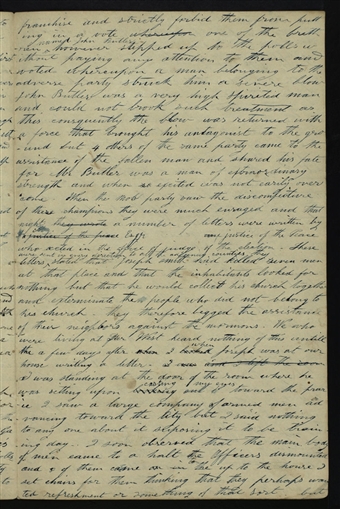 franchise and strictly forbid them from putt
ing in a vote whereupon one of the breth
ren named John Butler
however stepped up to the polls w
ithout paying any attention to them and
voted whereupon a man belonging to the
adverse party struck him a severe blow
John Butler was a very high spirited man
and could not brook such treatment as
this consequently the blow was returned with
a force that brought his antagonist to the gro
und but 4 others of the same party came to the
assistance of the fallen man and shared his fate
for Mr Butler was a man of extraordinary
strength and when so excited was not easily over
come. When the mob party saw the discomfiture
of these champions they were much enraged and that
night a number of letters were written by
justice of the peace
who acted in the office of judge of the election. these
letters stated that Joseph Smith had killed seven men
at that place and that the inhabitants looked for
nothing but that he would collect his church together
and exterminate the people who did not belong to
his church. they therefore begged the assistance
of their neighbors against the mormons. We who
were living at Far West heard nothing of this untill
a few days after when Joseph was at our
house writing a letter. I was
I was standing at the door of the room where he
was setting upon casting my eyes toward the prar
ie I saw a large company of armed men ad
vancing toward the City but I said nothing
to any one about it supposing it to be train
ing day. I soon observed that the main body
of men came to a halt the Officers dismounted
and 8 of them came up to the house I
set chairs for them thinking that they perhaps wan
ted refreshment or something of that sort but